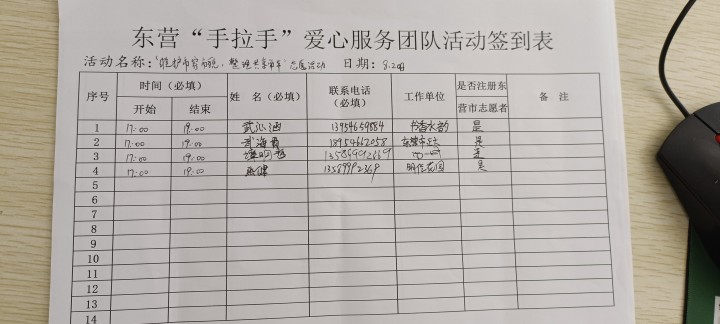 东营“手拉手”爱心服务团队活动签到表
活动名称：“维护市容市貌，整理共享单车”志愿活动 日期：8.2
序号 时间（必填） 姓 名（必填） 联系电话（必填） 工作单位 是否注册东营市志愿者 备 注
开始 结束
1 17:00 19:00 武沁涵 13954659884 书香水韵 是
2 17:00 19:00 武海霞 18954662058 是
3 17:00 19:00 是
4 17:00 19:00 是
5
6
7
8
9
10
11
12
13
14